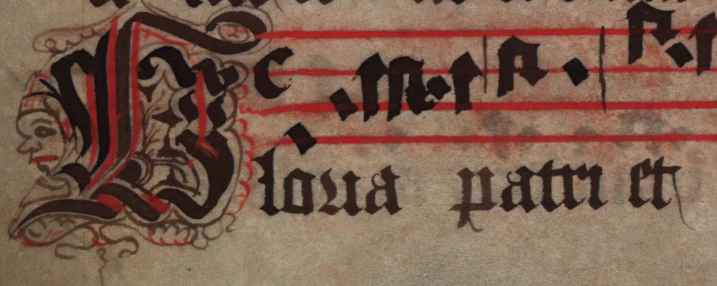 Gloria patri et